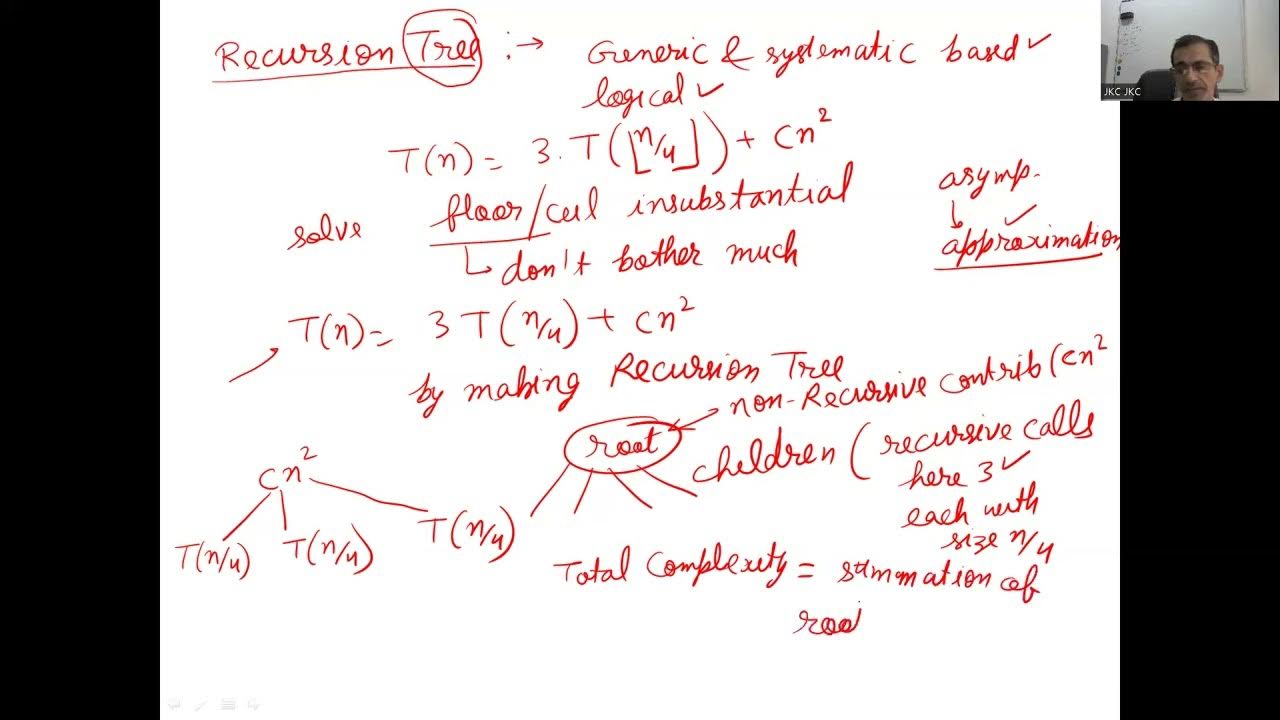 Recursion Tree :→ Generic & systematic based ✓
logical ✓
T(n) = 3.T(⌊n/4⌋) + cn²
asymp.
↳ approximation ✓
solve floor/ceil insubstantial
↳ don't bother much
T(n) = 3T(n/4) + cn²
by making Recursion Tree
root → non-Recursive contrib (cn²
children (recursive calls
here 3 ✓
each with
size n/4
cn²
T(n/4) T(n/4) T(n/4)
Total Complexity = summation of
roo
JKC JKC